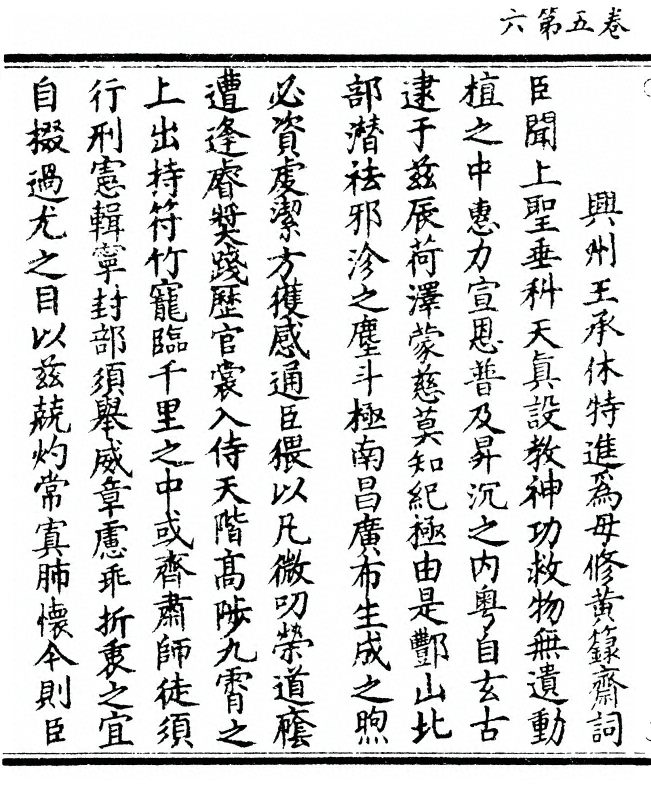 卷五第六
興州王承休特進爲母修黃籙齋詞
臣聞上聖垂科天眞設教神功救物無遺動
植之中惠力宣恩普及昇沉之内粤自玄古
逮于兹辰荷澤蒙慈莫知紀極由是酆山北
部潛祛邪沴之塵斗極南昌廣布生成之煦
必資虔潔方獲感通臣猥以凡微叨榮道廕
遭逢睿奬踐歷官裳入侍天階高陟九霄之
上出持符竹寵臨千里之中或齊肅師徒須
行刑憲輯寧封部須舉威章慮乖折衷之宜
自掇過尤之目以兹兢灼常寘肺懷今則臣